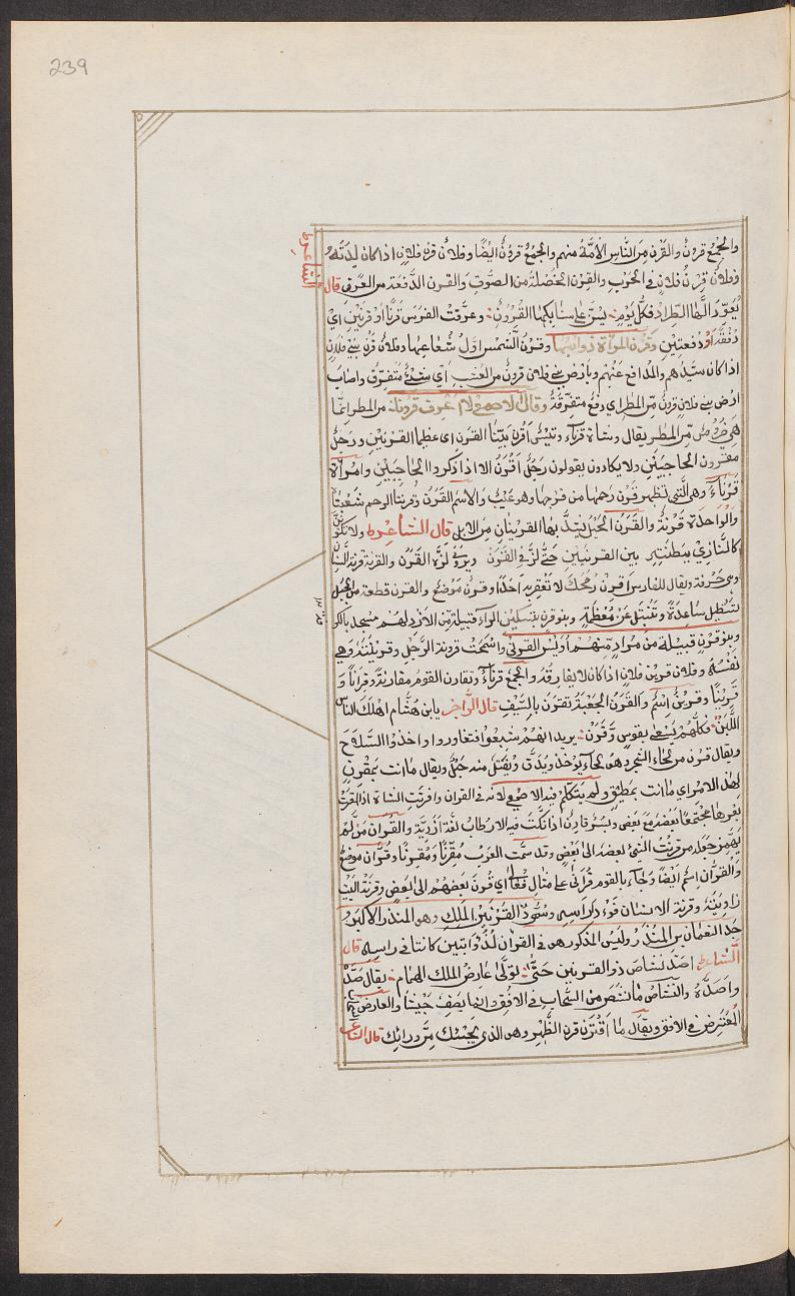 239
والجمع قرون والقرن من الناس الامة منهم والجمع قرون ايضا وفلان قرن فلان اذا كان لدته
وفلان قرن فلان في الحرب والقرن الخصلة من الصوف والقرن الدفعة من العرق قال
الشاعر
تعود الطراد فكل يوم يسن على سنابكها القرون وعرقت الفرس قرنا او قرنين اي
دفعة او دفعتين وقرن المرأة ذوائبها وقرن الشمس اول شعاعها وفلان قرن بني فلان
اذا كان سيدهم والمدافع عنهم وبارض بني فلان قرون من العشب اي شيء متفرق واصاب
ارض بني فلان قرون من المطر اي دفع متفرقة وقال الاصمعي ولا اعرف قرونا من المطر انما
هي من المطر يقال وشاة قرناء وتيس اقرن بينا القرن اي عظيما القرنين ورجل
مقرون الحاجبين ولا يكادون يقولون رجل اقرن الا اذا ذكروا الحاجبين وامرأة
قرناء وهي التي تظهر قرن رحمها من فرجها وهو عيب والاسم القرن وقرنتا الرحم شعبتاه
والواحدة قرنة والقرن الحبل يشد بها القرينان من الابل قال الشاعر ولا تكون
كالنازي ببطنته بين القرينين حتى لز في القرن ويروى لزه القرن والقرنة قرنة السنان
وهي حرفه ويقال للفارس اقرن رمحك لا تعقر به احدا وقرن موضع والقرن قطعة من الجبل
تستطيل ساعدة وتنبتل عن معظمه وبنو قرن بتسكين الراء قبيلة من الازد لهم مسجد بالكو
وبنو قرن قبيلة من مراد منهم اويس القرني واسمحت قرونة الرجل وقرينته وهي
نفسه وفلان قرين فلان اذا كان لا يفارقه والجمع قرناء وتقارن القوم مقارنة وقرانا و
قرينا وقرين اسم والقرن الجعبة تقرن بالسيف قال الراجز يا بن هشام اهلك الناس
اللبن فكلهم يسعى بقوس وقرن يريد انهم شبعوا فتغاوروا واخذوا السلاح
ويقال قرن من لحاء الشجر وهو لحاء يؤخذ ويدق ويفتل منه حبل ويقال ما انت بمقرن
لهذا الامر اي ما انت بمطيق ولم يتكلم فيه الاصمعي لانه في القران واقرنت الشاة اذا القت
بعرها مجتمعا بعضه مع بعض وبسر قارن اذا نكت فيه الارطاب لغة ازدية والقران من لم
يهمز جعله من قرنت الشيء بعضه الى بعض وقد سمت العرب مقرنا ومقرونا وقران موضع
والقران اسم ايضا وجاء بالقوم قرانى على مثال فعالى اي قرن بعضهم الى بعض وقرنة البيت
زاويته وقرنة الانسان فود راسه وسمي ذو القرنين الملك وهو المنذر الاكبر
جد النعمان بن المنذر وليس المذكور هو في القران لذؤابتين كانتا في راسه قال
الشاعر اصد نشاص ذو القرنين حتى تولى عارض الملك الهمام يقال صد
واصده والنشاص ما نتص من السحاب في الافق وانما يصف جيشا والعارض
المعترض في الافق ويقال ما اقترن قرن الظهر وهو الذي يجيئك من ورائك قال الشاعر